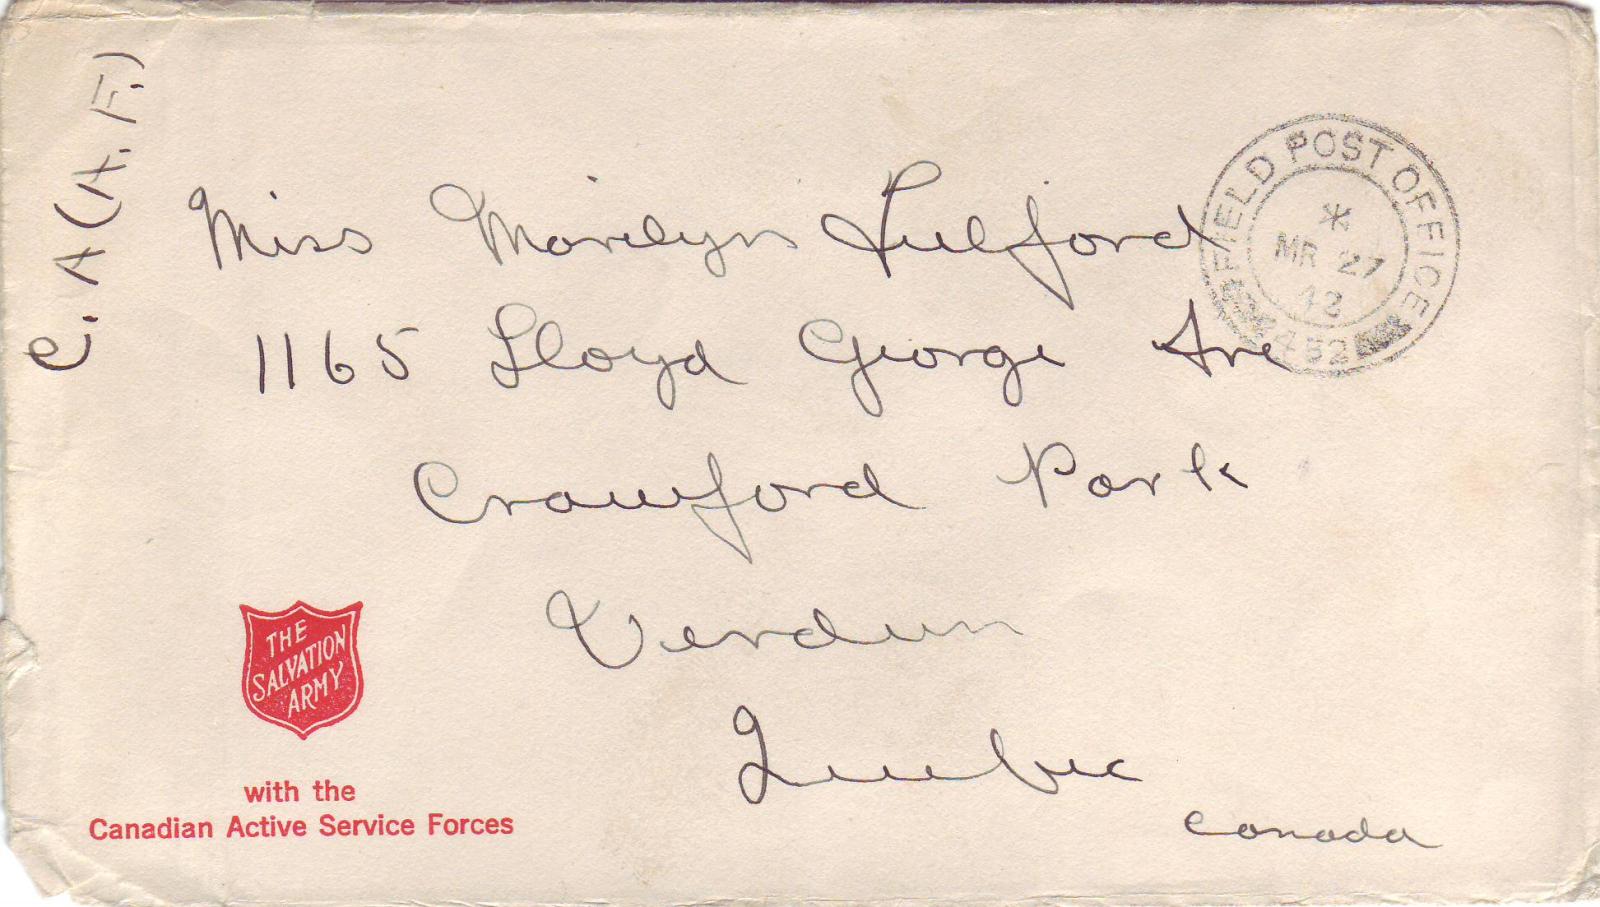 C.A(A.F.)
Miss Marilyn Fulford
1165 Lloyd George Ave
Crawford Park
Verdun
Quebec
Canada
FIELD POST OFFICE
*
MR 27
42
452
THE
SALVATION
ARMY
with the
Canadian Active Service Forces